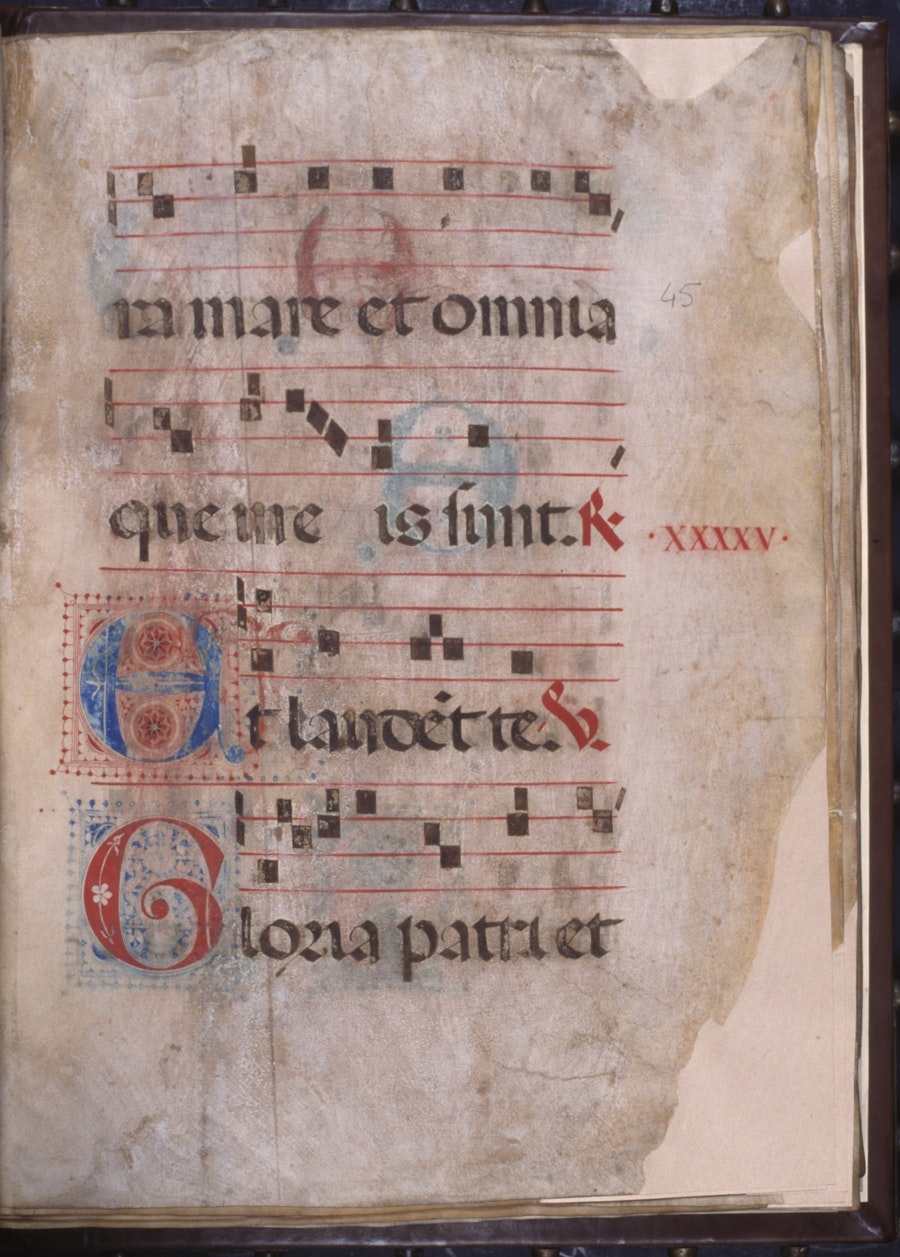 ra mare et omnia
45
que in e is sunt. R.
·XXXXV·
Et laudēt te. V.
Gloria patri et